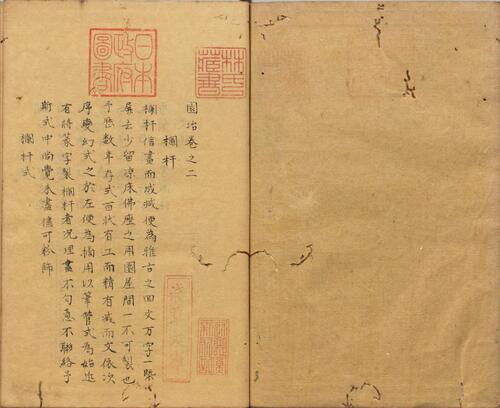 林氏
藏書
日本
政府
圖書
園冶卷之二
欄杆
欄杆信畫而成減便為雅古之回文万字一槩
屏去少留凉床佛座之用園屋間一不可製也
予歷数年存式百狀有工而精有减而文依次
序變幻式之於左便為摘用以筆管式為始近
有將篆字製欄杆者況理畫不勻意不聯絡予
斯式中尚覺未盡儘可粉飾
欄杆式